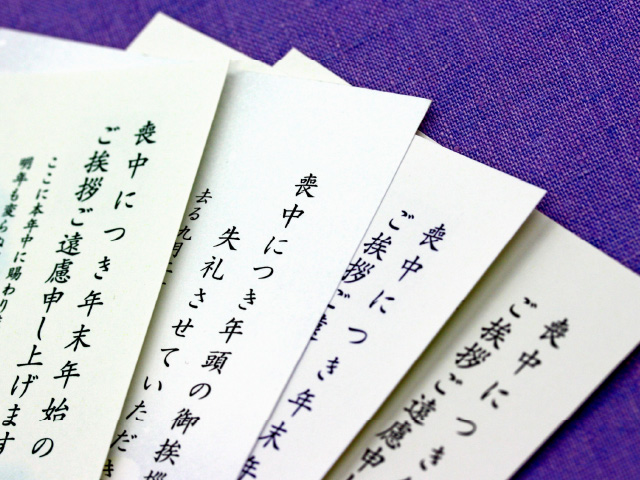 喪中につき年末年始の
ご挨拶ご遠慮申し上げます
ここに本年中に賜わり
明年も変らぬ
喪中につき年頭の御挨拶
失礼させていただき
去る九月
喪中につき年末年
ご挨拶ご遠
喪中につき
ご挨拶ご遠慮申